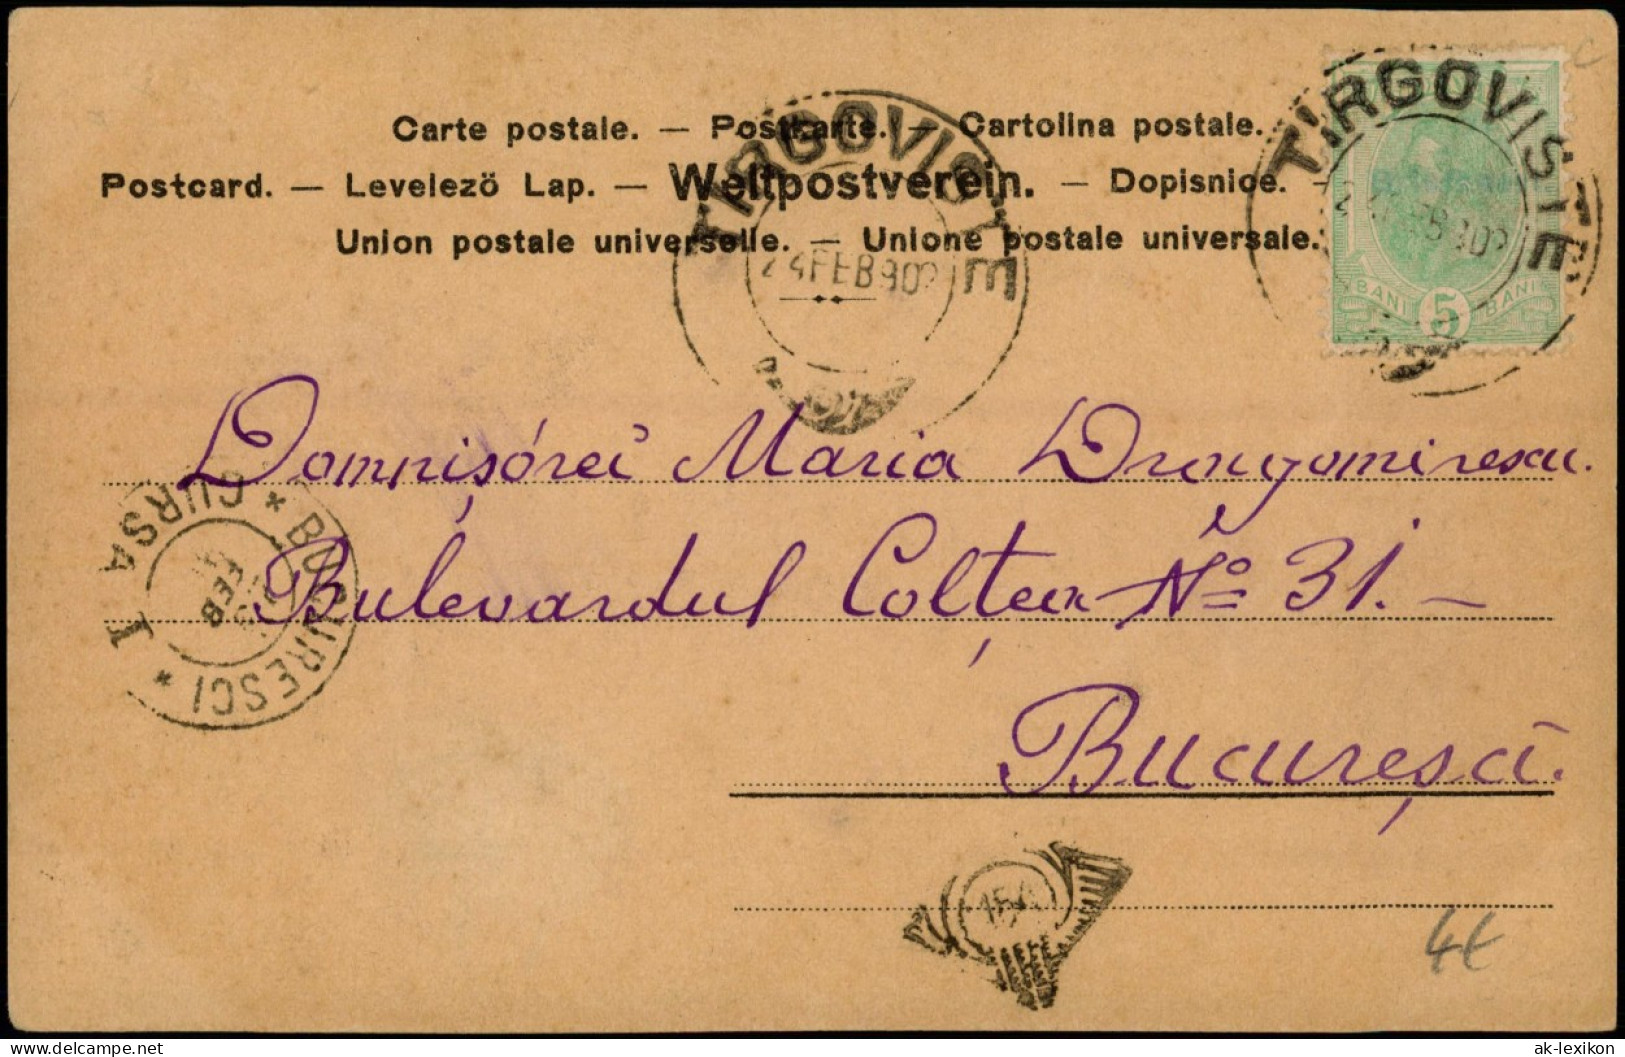 Carte postale. — Postkarte. — Cartolina postale.
Postcard. — Levelezö Lap. — Weltpostverein. — Dopisnice. —
Union postale universelle. — Unione postale universale.
TIRGOVISTE
24 FEB 902
TIRGOVISTE
FEB 902
BANI 5 BANI
Domnișórei Maria Dragomirescu.
Bulevardul Colțea No 31. —
Bucuresci.
* BUCURESCI * CURSA I
FEB
154
4€
delcampe.net
ak-lexikon